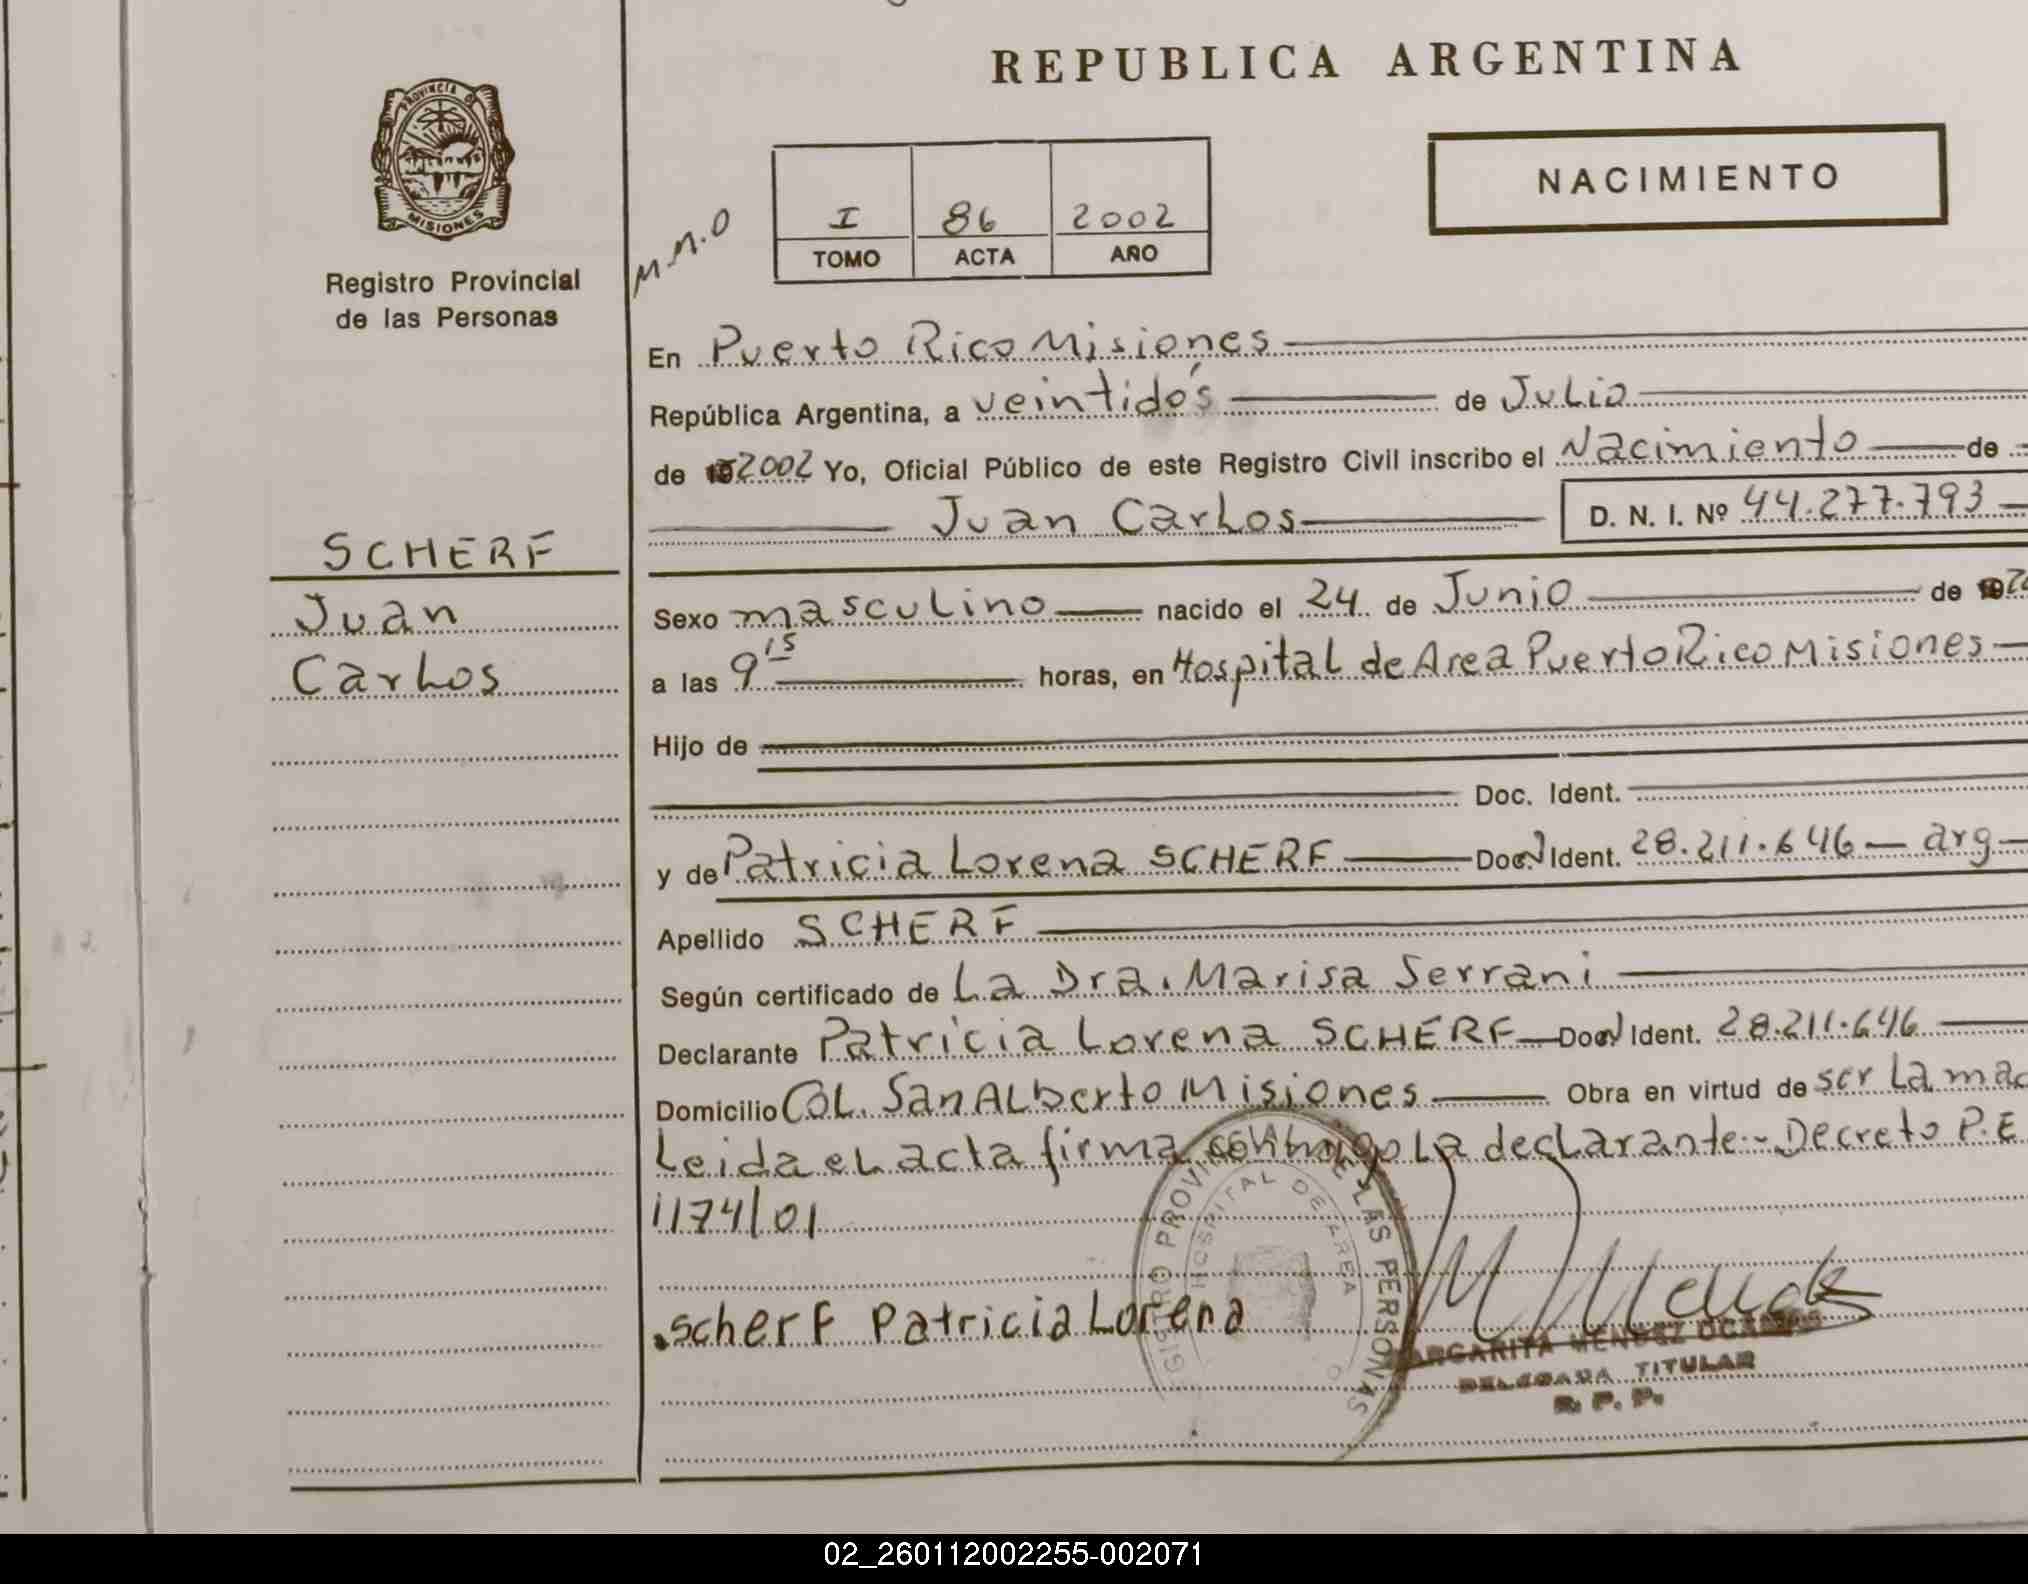 REPUBLICA ARGENTINA
PROVINCIA DE
MISIONES
Registro Provincial
de las Personas
NACIMIENTO
M.M.O
I 86 2002
TOMO ACTA AÑO
En Puerto Rico Misiones
República Argentina, a veintidós de Julio
de 2002 Yo, Oficial Público de este Registro Civil inscribo el Nacimiento de
Juan Carlos D. N. I. Nº 44.277.793
SCHERF
Juan
Carlos
Sexo masculino nacido el 24 de Junio de
a las 9 15 horas, en Hospital de Area Puerto Rico Misiones
Hijo de
Doc. Ident.
y de Patricia Lorena SCHERF Ident. 28.211.646 — arg
Apellido SCHERF
Según certificado de La Dra. Marisa Serrani
Declarante Patricia Lorena SCHERF Ident. 28.211.646
Domicilio Col. San Alberto Misiones Obra en virtud de ser La
Leida el acta firma conmigo La declarante.- Decreto P.E
1174/01
HOSPITAL DE AREA
LAS PERSONAS
.scherf Patricia Lorena
MARGARITA MENDEZ
DELEGADA TITULAR
R. P. P.
02_260112002255-002071